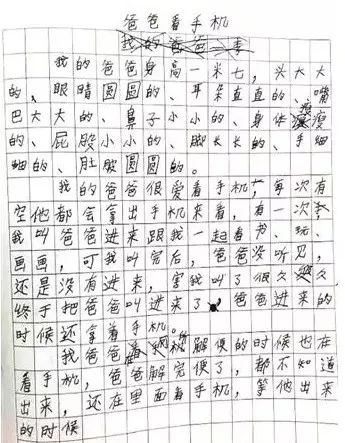 爸爸看手机
我的爸爸一事
我的爸爸身高一米七，头大大
的、眼睛圆圆的、耳朵直直的、嘴
巴大大的、鼻子小小的、身体瘦瘦
的、屁股小小的、脚长长的、手细
细的、肚脸圆圆的。
我的爸爸很爱看手机，每次有
空他都会拿出手机来看，有一次
我叫爸爸进来跟我一起看书、玩、
画画，可我叫完后，爸爸没听见，
还是没有进来，害我叫了很久久
终于把爸爸叫进来了，爸爸进来的
时候还拿着手机。
我爸爸看手机解便的时候也在
看手机，爸爸解完便了，都不知道
出来，还在里面看手机，等他出来
的时候